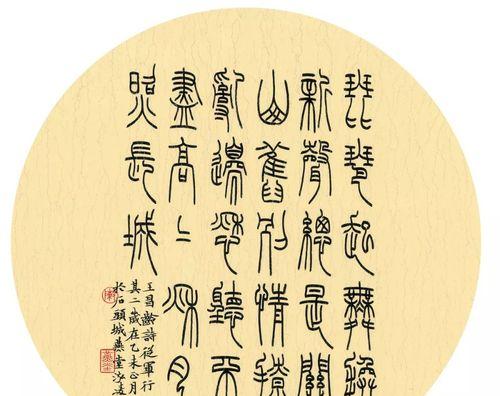 琵琶起舞換
新聲總是關
山舊別情撩
亂邊愁聽不
盡高〻秋月
照長城
王昌齡詩從軍行
其二歲在乙未正月
於石頭城燕堂